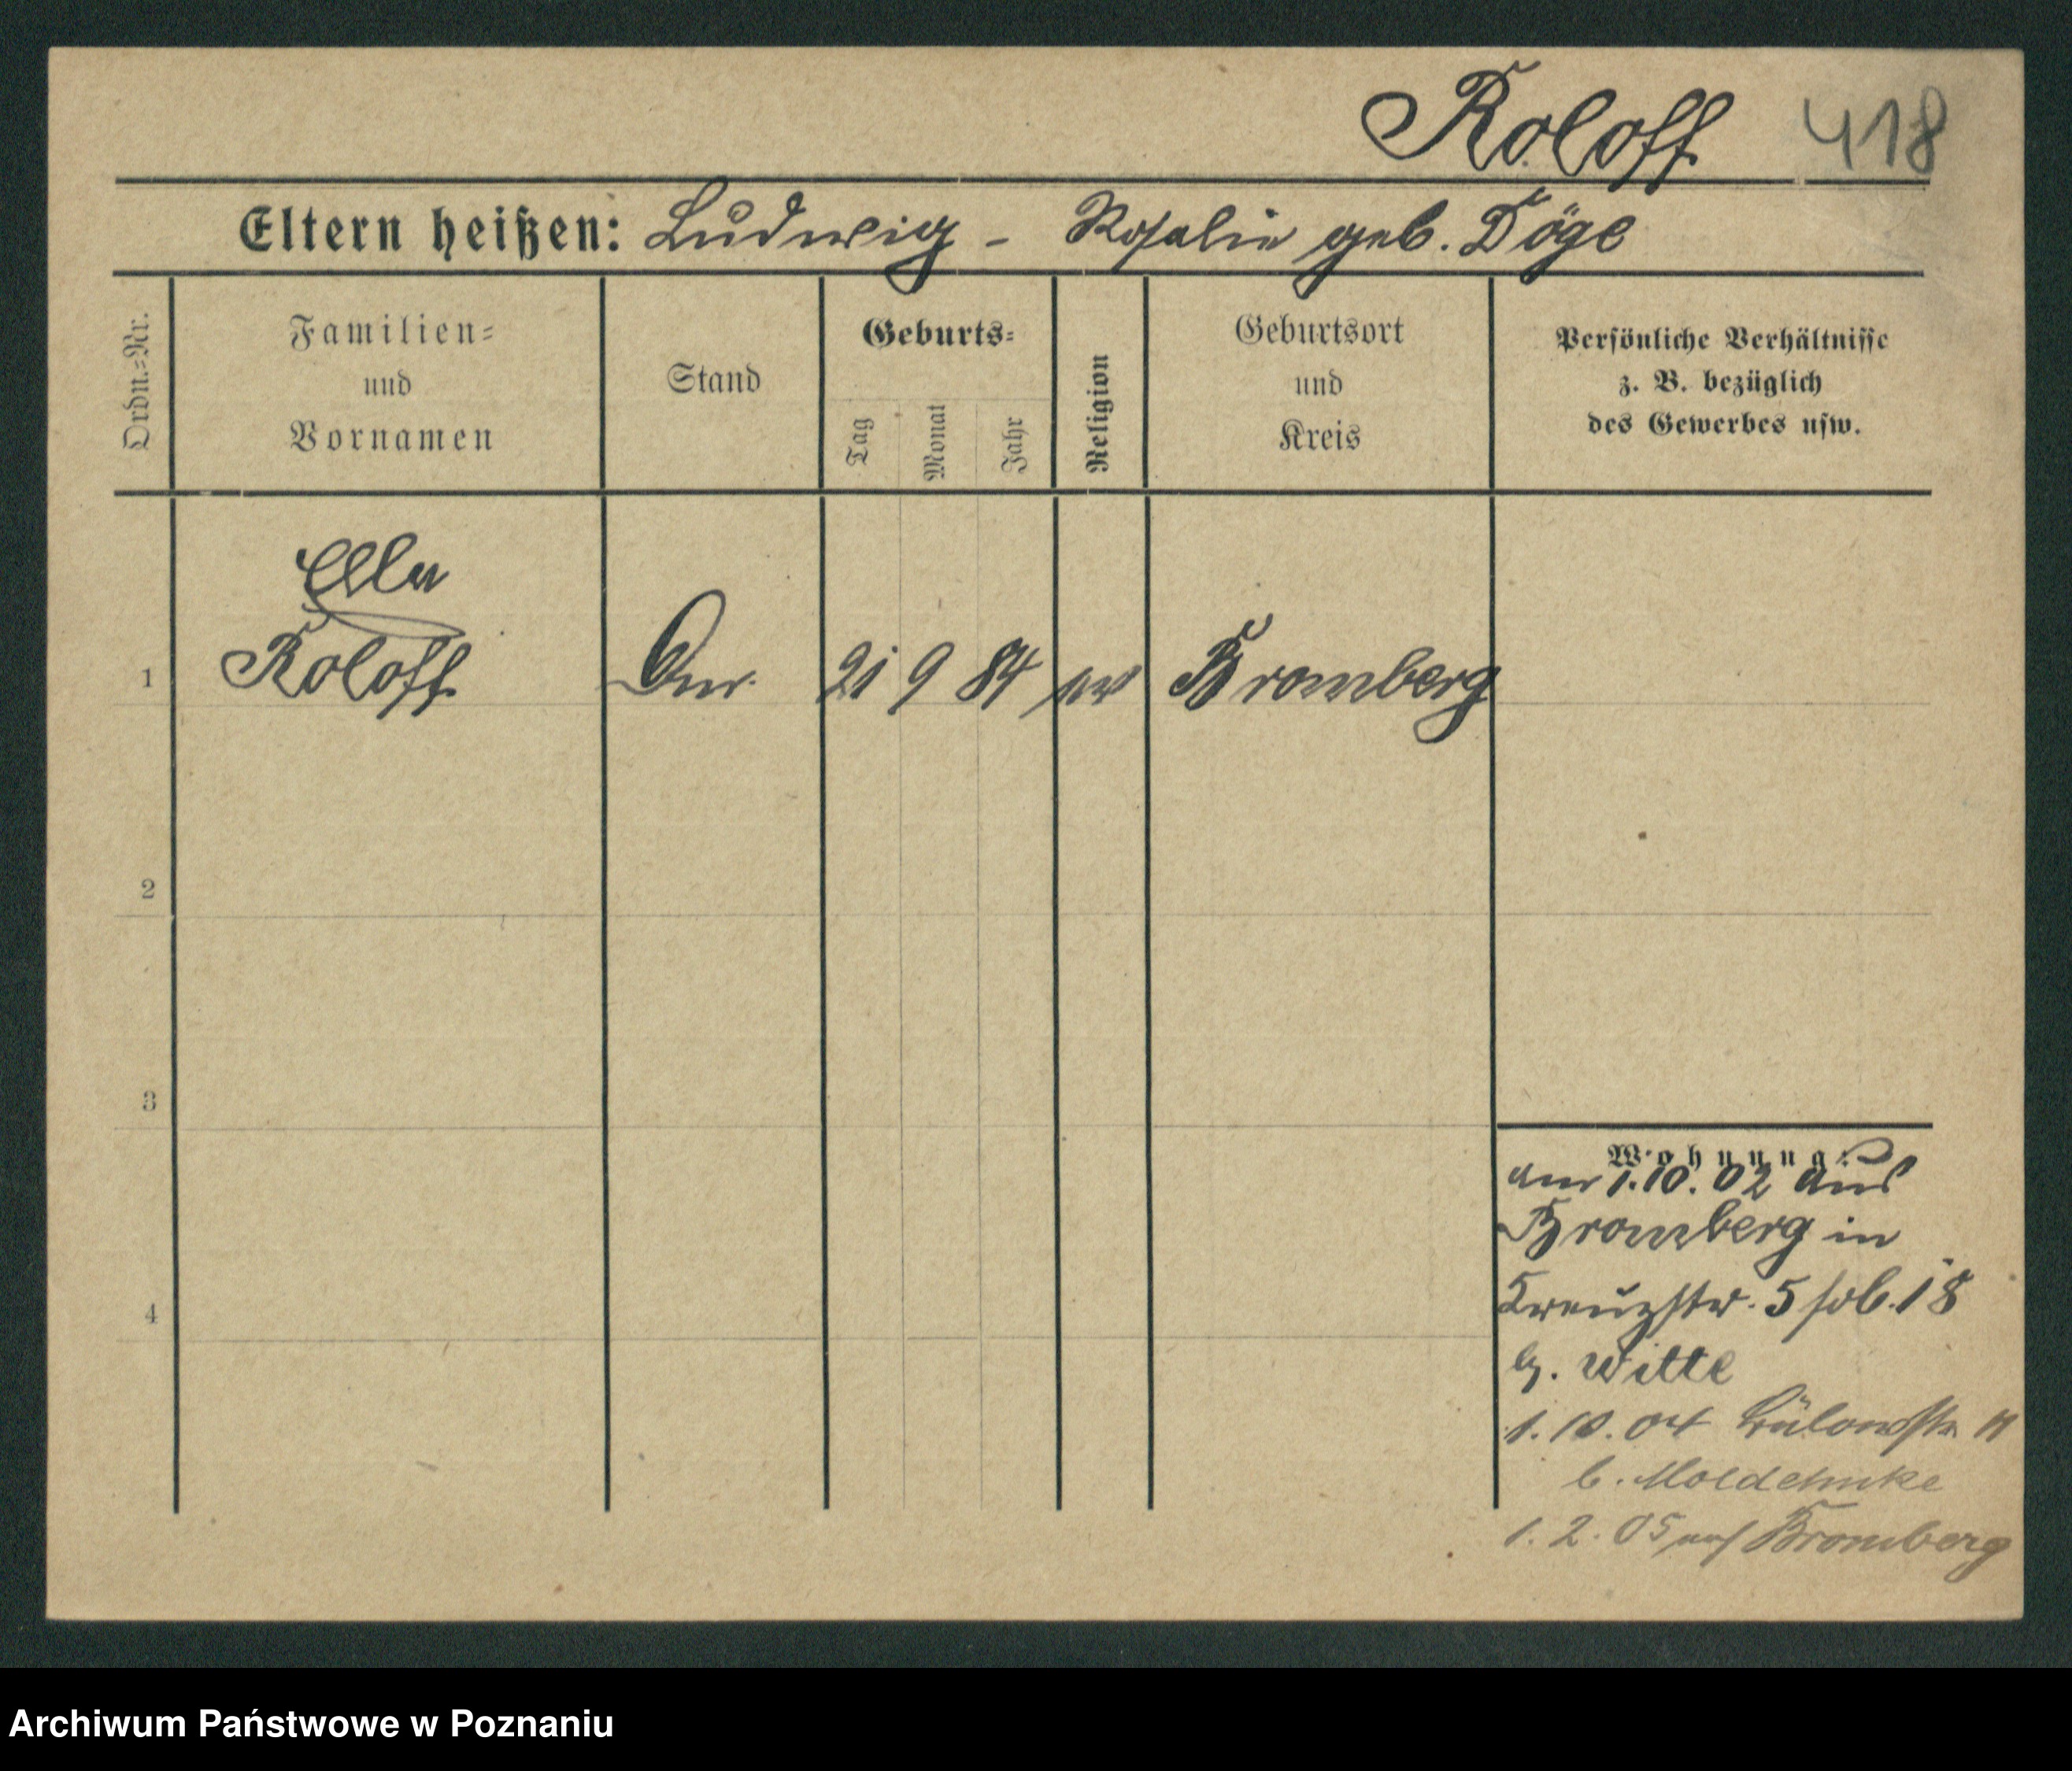 Roloff 418
Eltern heißen: Ludwig - Rosalie geb. Döge
Ordn.=Nr.
Familien=
und
Vornamen
Stand
Geburts=
Tag
Monat
Jahr
Religion
Geburtsort
und
Kreis
Persönliche Verhältnisse
z. B. bezüglich
des Gewerbes usw.
Ella
1 Roloff 21 9 84 ev Bromberg
2
3
4
Wohnung:
am 1.10.02 aus
Bromberg in
Kreuzstr. 5 18
b. Witte
1.10.04 Bülowstr. 11
b. Moldehnke
1.2.05 auf Bromberg
Archiwum Państwowe w Poznaniu